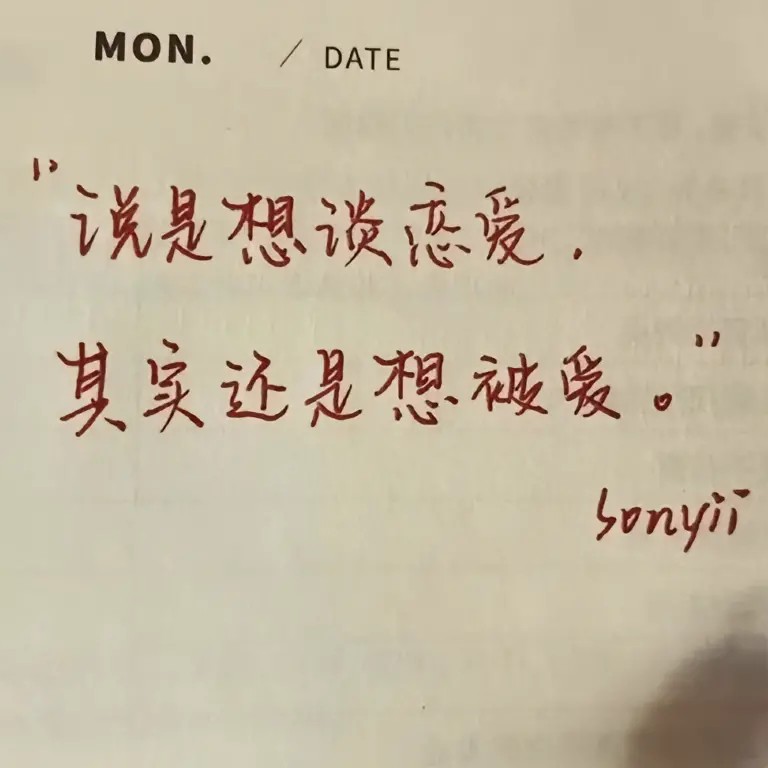 MON. / DATE
"说是想谈恋爱.
其实还是想被爱。"
sonyii